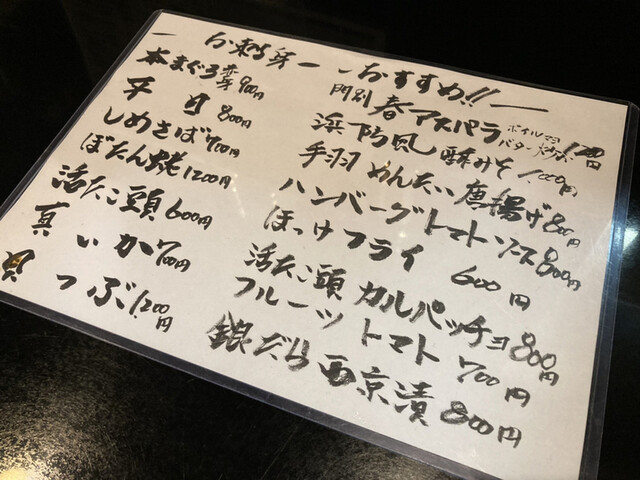 ー お刺身 ー
本まぐろ 赤身 900円
平目 800円
しめさば 700円
ぼたん海老 1200円
活たこ頭 600円
真いか 700円
貝つぶ 1,200円
ー おすすめ!! ー
門別 春アスパラ ボイルマヨ バター炒め
浜防風 酢みそ 1,000円
手羽めんたい唐揚げ 800円
ハンバーグトマトソース 800円
ほっけフライ 600円
活たこ頭 カルパッチョ 800円
フルーツトマト 700円
銀だら西京漬 800円